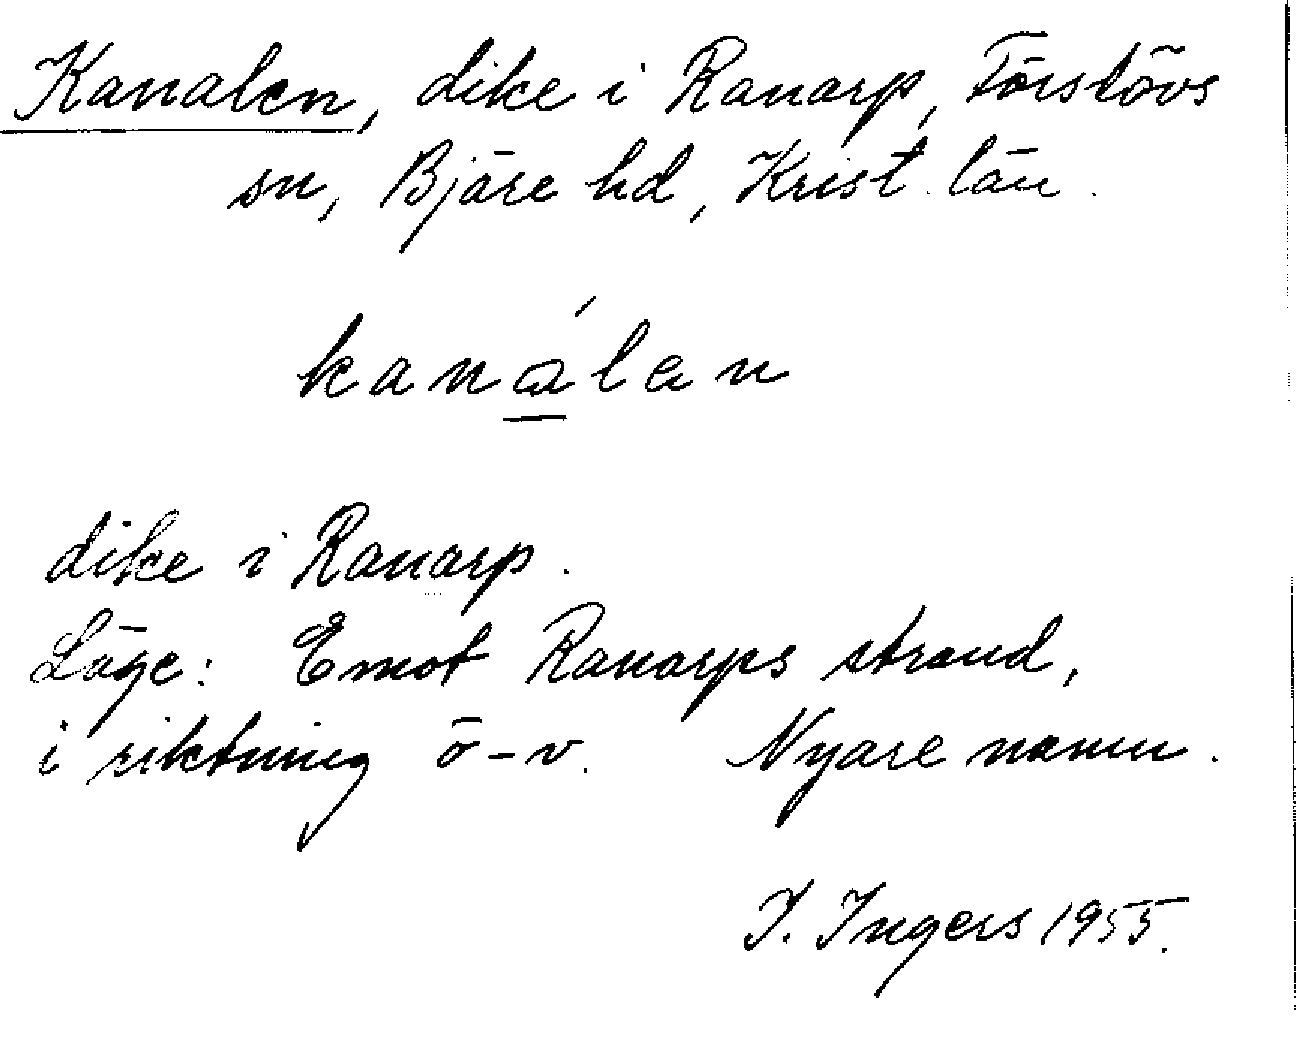 Kanalen, dike i Ranarp, Förslövs
sn, Bjäre hd, Krist. län.
kanálen
dike i Ranarp.
Läge: Emot Ranarps strand,
i riktning ö-v. Nyare namn.
I. Ingers 1955.